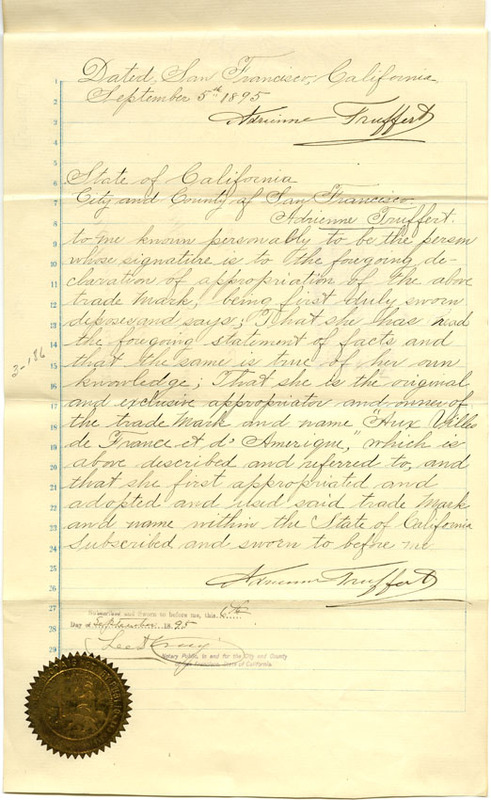 Dated, San Francisco, California
September 5th 1895
Adrienne Truffert
State of California
City and County of San Francisco
Adrienne Truffert
to me known personably to be the person
whose signature is to the foregoing de-
claration of appropriation of the above
trade Mark, being first duly sworn
deposes and says; That she has read
the foregoing statement of facts and
that the same is true of her own
knowledge; That she is the original
and exclusive appropriator and owner of
the trade Mark and name "Aux Villes
de France et d' Amerique," which is
above described and referred to, and
that she first appropriated and
adopted and used said trade Mark
and name within the State of California
Subscribed and sworn to before me
Adrienne Truffert
Subscribed and Sworn to before me, this 6th
Day of September 1895
Lee D Craig
Notary Public, in and for the City and County
of San Francisco, State of California.
3-186
1
2
3
4
5
6
7
8
9
10
11
12
13
14
15
16
17
18
19
20
21
22
23
24
25
26
27
28
29